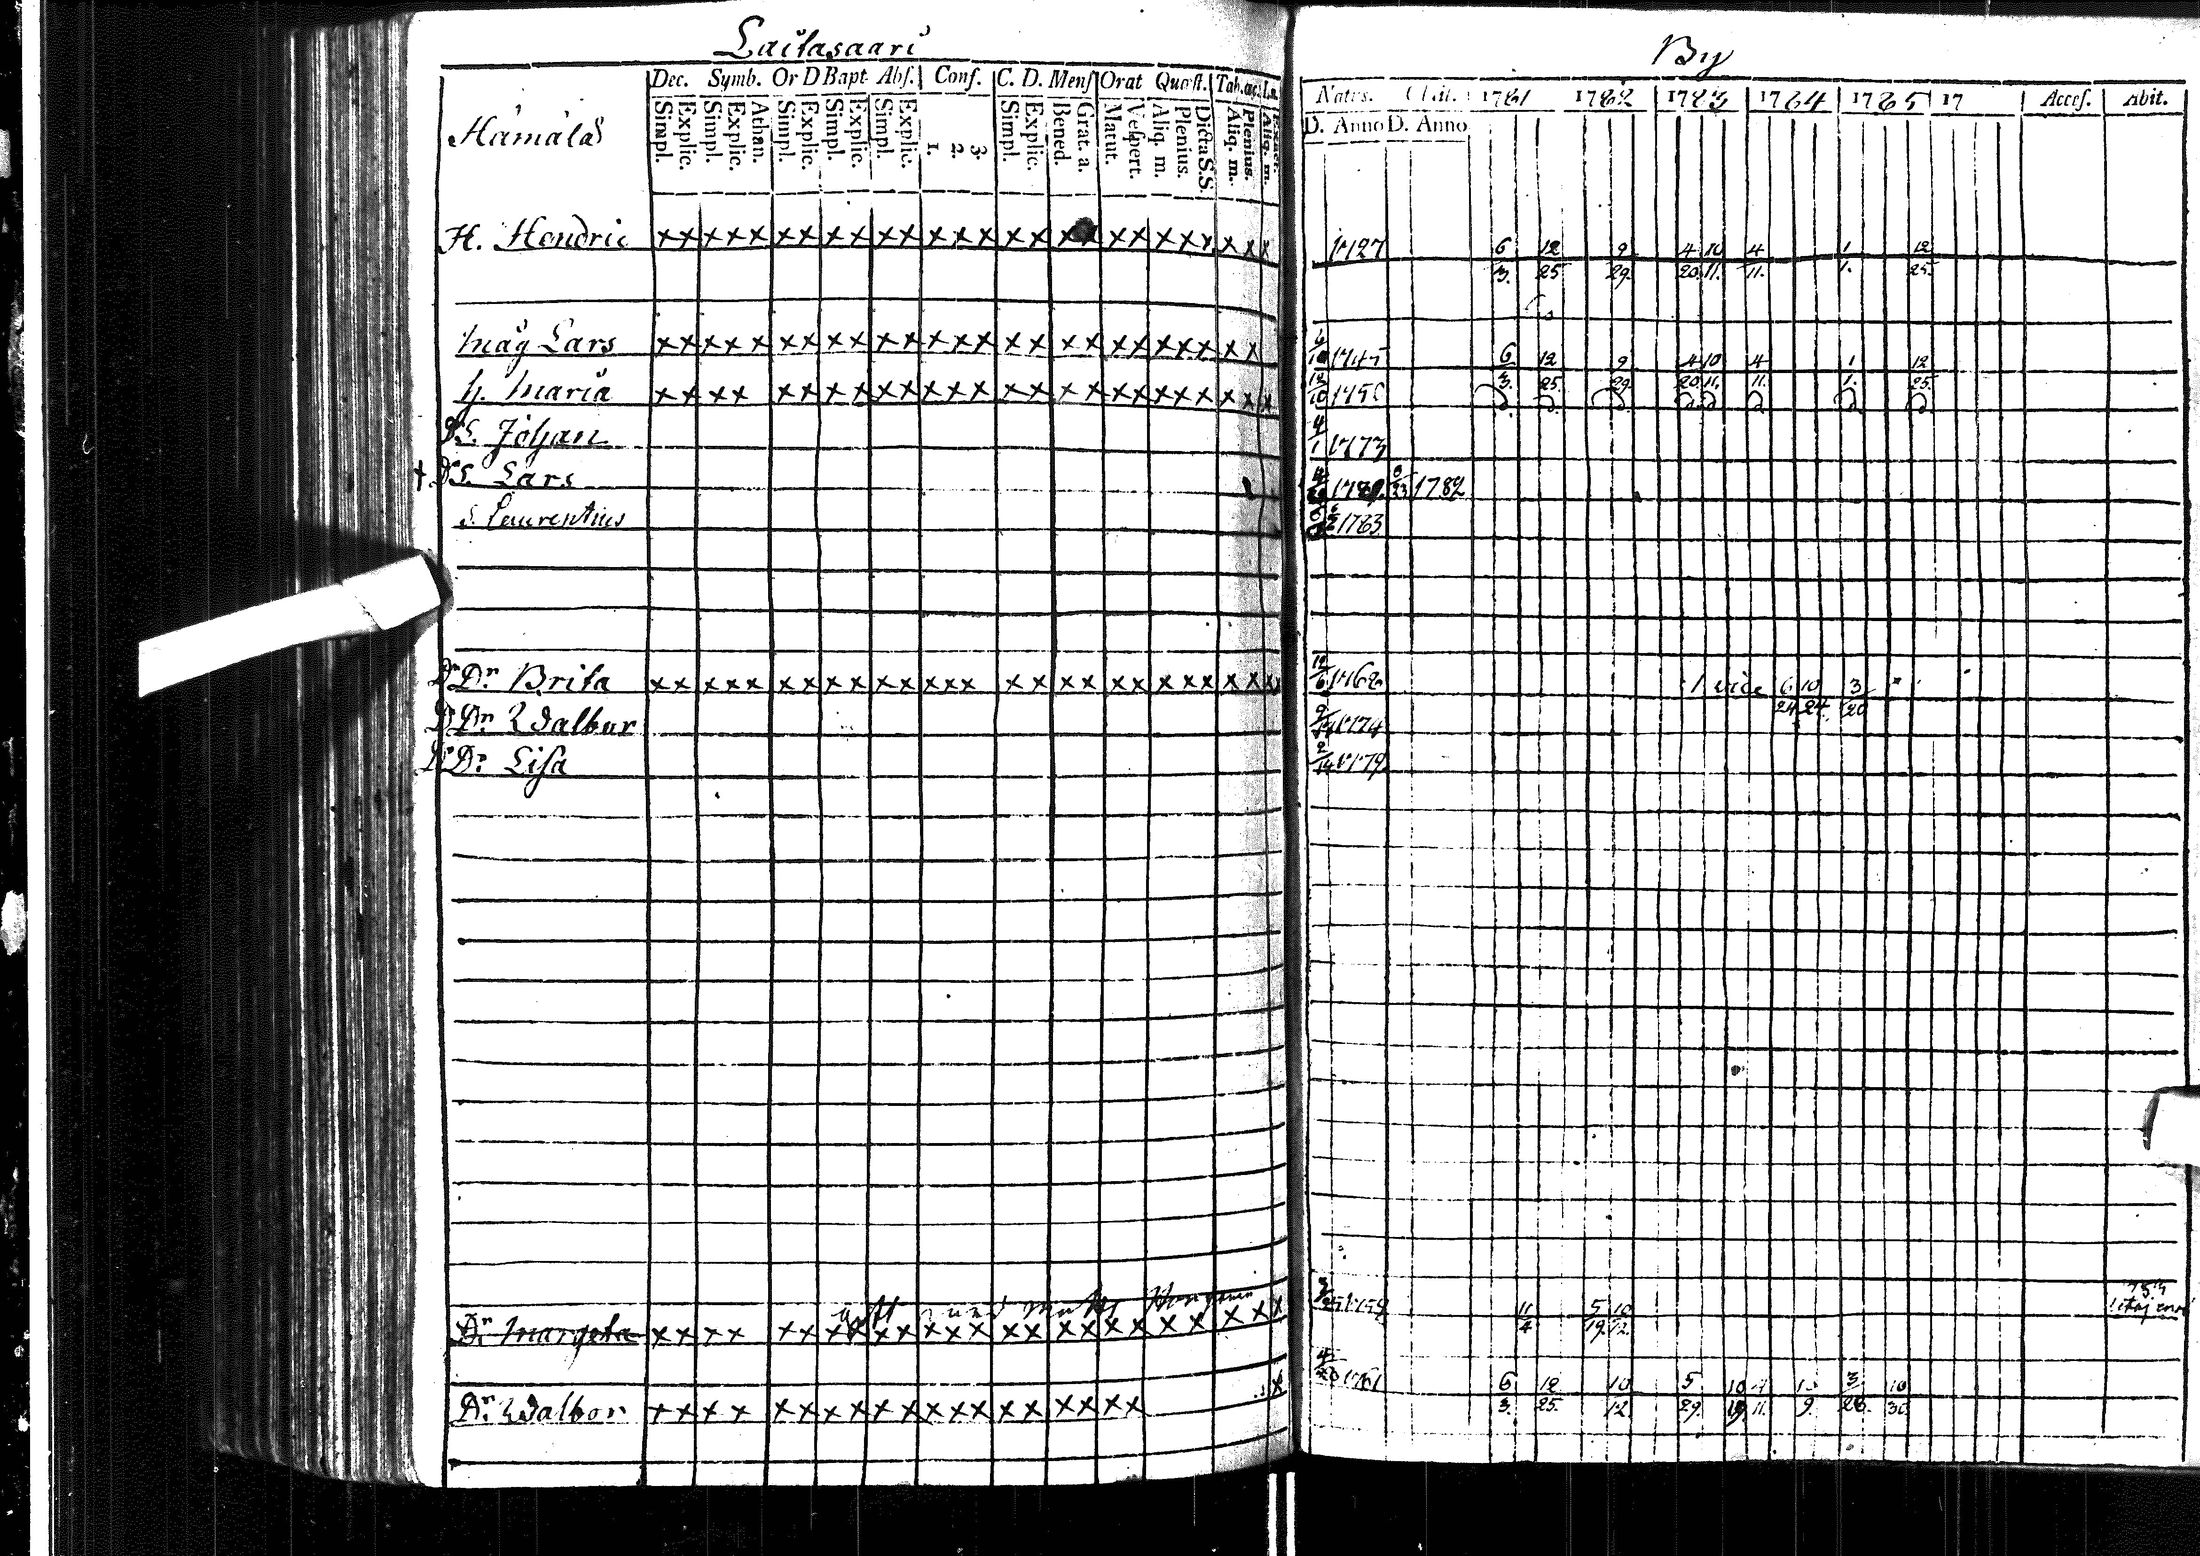 Laitasaari By
Dec. Symb. Or D Bapt Abs. Conf. C. D. Mens Orat Quæst. Tab. œc.
Natus. Obit. 1781 1782 1783 1784 1785 17 Acces. Abit.
Simpl. Explic. Simpl. Explic. Athan. Simpl. Explic. Simpl. Explic. Simpl. Explic. 1. 2. 3. Simpl. Explic. Bened. Grat. a. Matut. Vespert. Aliq. m. Plenius. Dicta S.S. Aliq. m. Plenius. Aliq. m.
D. Anno D. Anno
Hämälä
H. Hendric x x x x x x x x x x x x x x x x x x x x x x x x x x 1727 6/3. 12/25 9/29. 4/20 10/11. 4/11. 1/1. 12/25.
måg Lars x x x x x x x x x x x x x x x x x x x x x x x x x 1745 6/3. 12/25. 9/29. 4/20 10/11. 4/11. 1/1. 12/25.
h. Maria x x x x x x x x x x x x x x x x x x x x x x x x x 12/10 1750
S. Johan 4/1 1773
+ S. Lars 1782
S. Laurentius 1783
Dr Dr. Brita x x x x x x x x x x x x x x x x x x x x x x x x x x 12/6 1762 1 vice 6/24 10/24 3/20
Dr Dr. Walbur 1774
Dr Dr. Lisa 2/14 1779
gift med
Dr. Margeta x x x x x x x x x x x x x x x x x x x x x x x x 1759 11/4 5/19 10/12.
Dr. Walbor x x x x x x x x x x x x x x x x x x x 1761 6/3. 12/25. 10/12. 5/29. 3/28. 10/30.